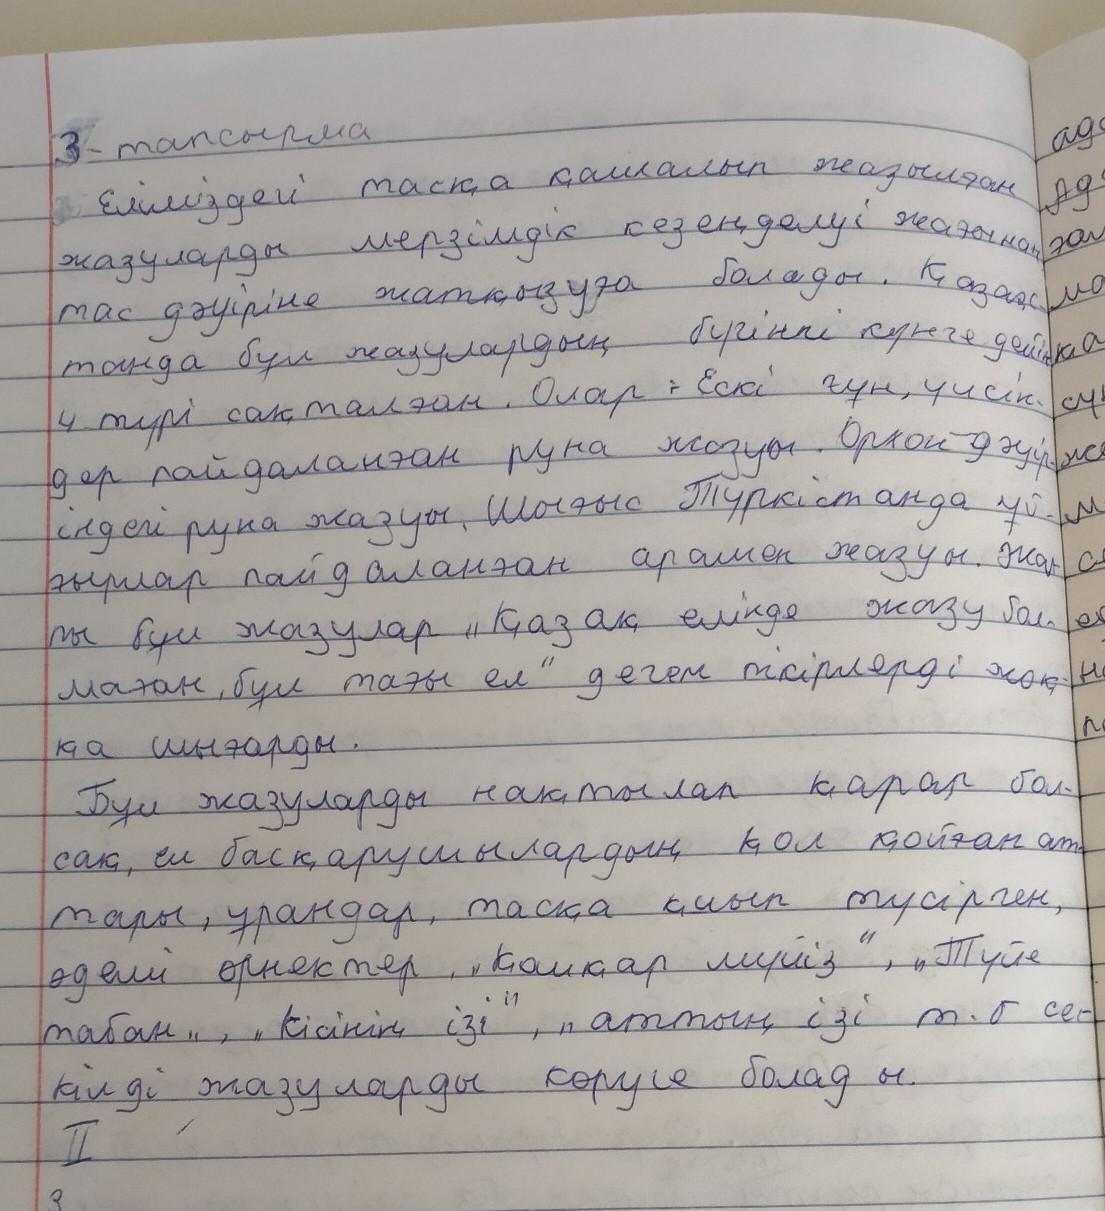 3-тапсырма
Еліміздегі тасқа қашалып жазылған
жазуларды мерзімдік кезеңделуі жағынан
тас дәуіріне жатқызуға болады. Қазақс
танда бұл жазулардың бүгінгі күнге дейін
4 түрі сақталған. Олар: Ескі ғұн, үйсін-
дер пайдаланған руна жазуы. Орхон дәуір-
індегі руна жазуы. Шығыс Түркістанда ұй-
ғырлар пайдаланған арамен жазуы. Жал
пы бұл жазулар „Қазақ елінде жазу бол-
маған, бұл тағы ел" деген пікірлерді жоқ-
қа шығарды.
Бұл жазуларды нақтылап қарар бол-
сақ, ел басқарушылардың қол қойған ат-
тары, ұрандар, тасқа қиып түсірген,
әдемі өрнектер, „Қошқар мүйіз", „Түйе
табан„, „кісінің ізі", „аттың ізі т.б сек
кілді жазуларды көруге болады.
II
3
ада